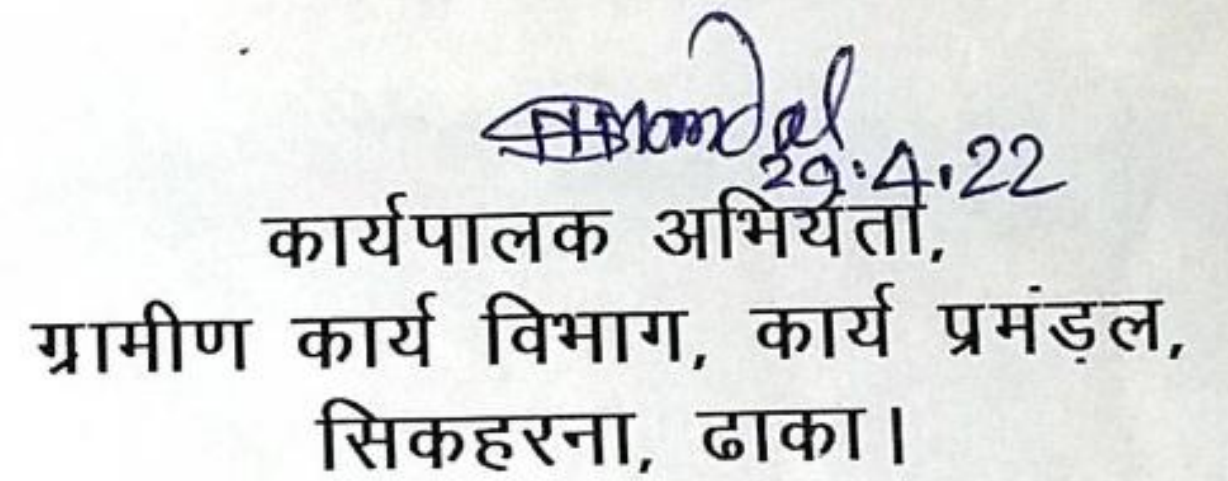 29.4.22
कार्यपालक अभियंता,
ग्रामीण कार्य विभाग, कार्य प्रमंड़ल,
सिकहरना, ढाका।